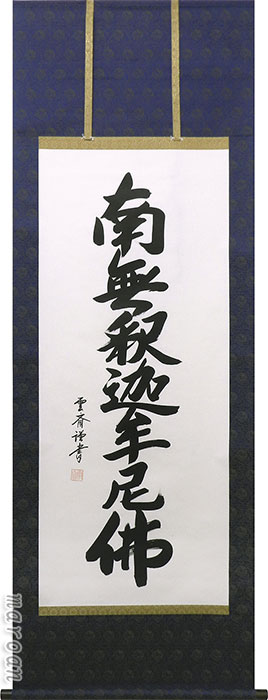 南無釈迦牟尼佛
雲斎謹書
maroan